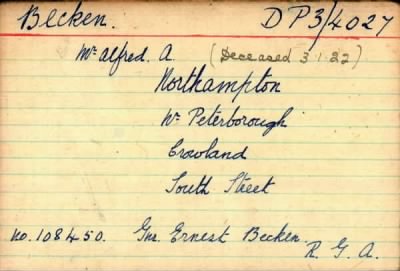 Becken. DP3/4027
Mr alfred. A. (Deceased 3.1.22)
Northampton
Nr Peterborough
Crowland
South Street
no. 108450. Gnr. Ernest Becken.
R. G. A.